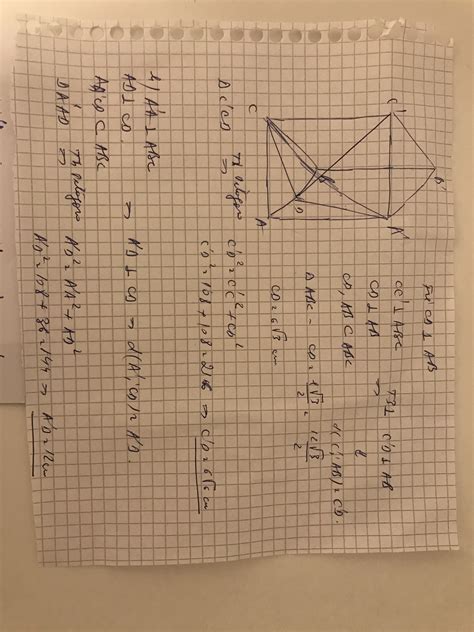 C'
B'
A'
C
B
D
A
Fie CD ⊥ AB
CC' ⊥ ABC
CD ⊥ AB
CD, AB ⊂ ABC
⇒ T3⊥ C'D ⊥ AB
d(C', AB) = C'D.
Δ ABC - CD = l√3/2 = 12√3/2
CD = 6√3 cm
Δ C'CD Th Pitagora ⇒ C'D² = C'C² + CD²
C'D² = 108 + 108 = 216 ⇒ C'D = 6√6 cm
A'A ⊥ ABC
AD ⊥ CD.
AD, CD ⊂ ABC
⇒ A'D ⊥ CD ⇒ d(A', CD) = A'D.
Δ A'AD Th Pitagora ⇒ A'D² = A'A² + AD²
A'D² = 108 + 36 = 144 ⇒ A'D = 12 cm